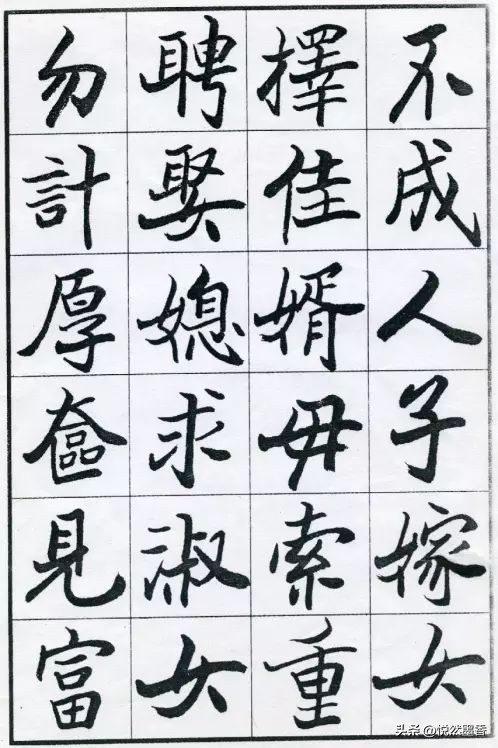 不成人子嫁女
擇佳婿毋索重
聘娶媳求淑女
勿計厚奩見富
头条 @悦然墨香